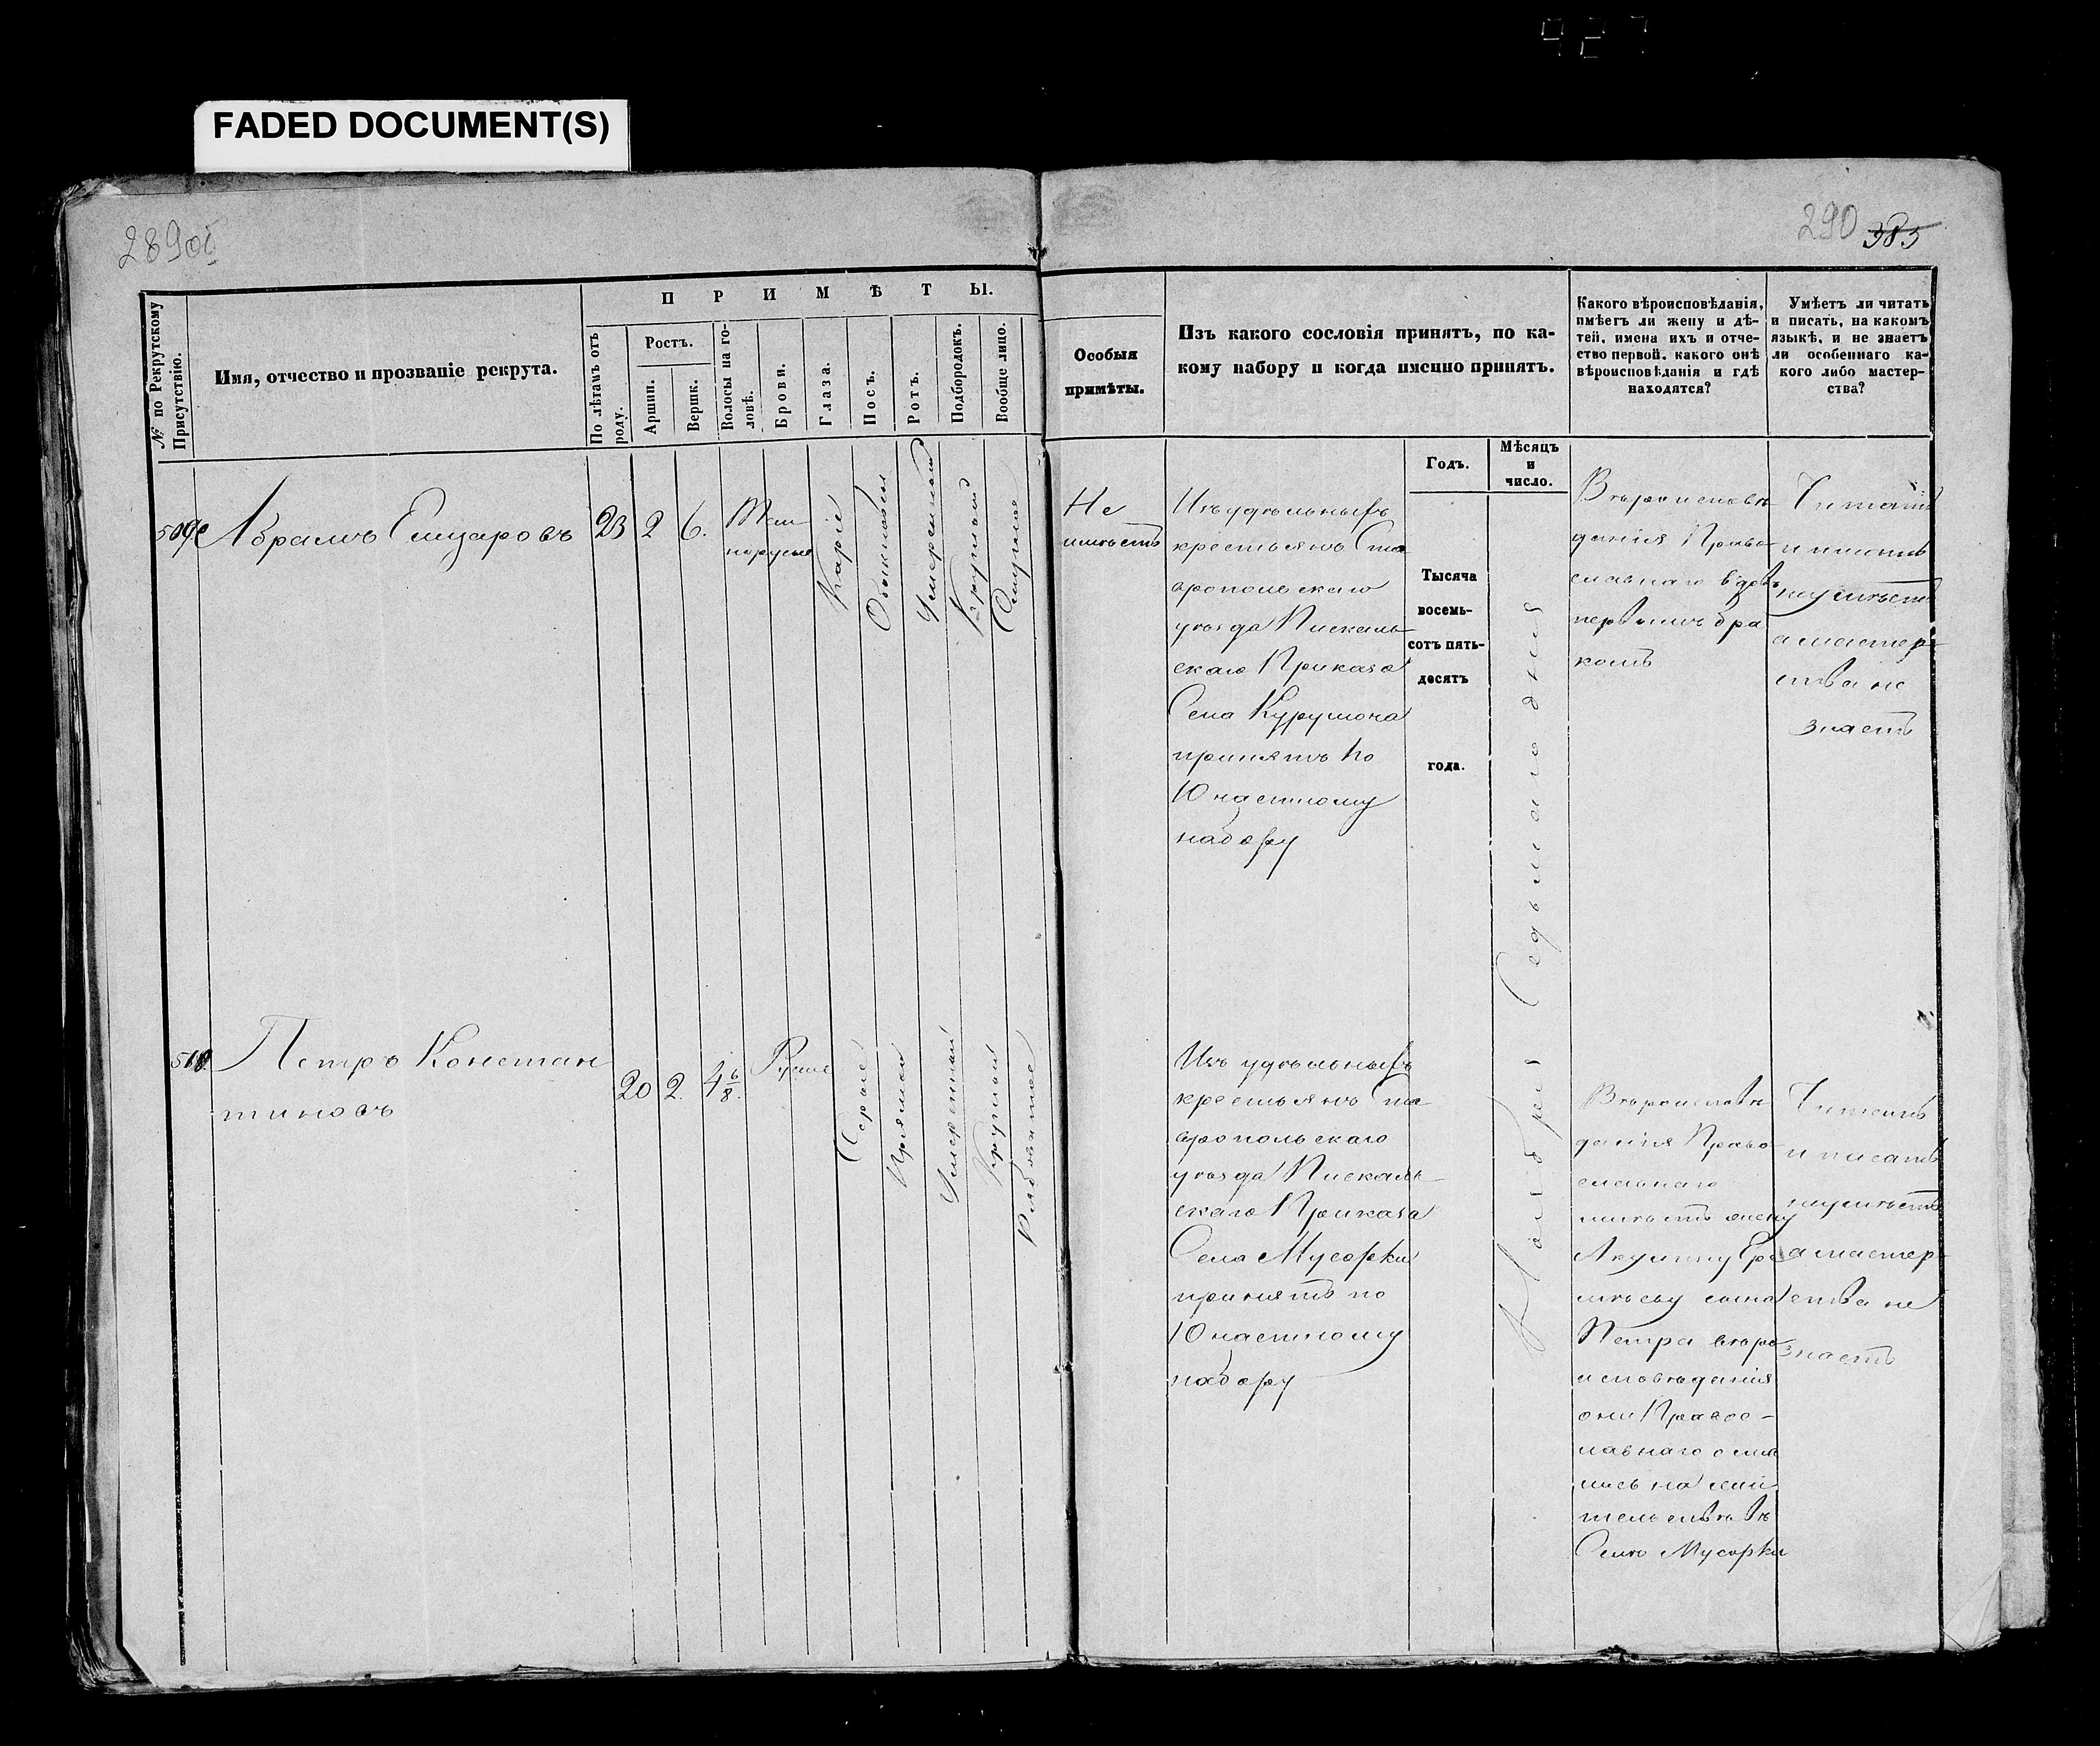 927
FADED DOCUMENT(S)
289об
290 385
№ по Рекрутскому Присутствію.
Имя, отчество и прозваніе рекрута.
ПРИМѢТЫ.
По лѣтамъ отъ роду.
Ростъ.
Аршин.
Вершк.
Волосы на головѣ.
Брови.
Глаза.
Носъ.
Ротъ.
Подбородокъ.
Вообще лицо.
Особыя
примѣты.
Изъ какого сословія принятъ, по ка-
кому набору и когда именно принятъ.
Годъ.
Мѣсяцъ
и
число.
Какого вѣроисповѣданія,
имѣетъ ли жену и дѣ-
тей, имена ихъ и отче-
ство первой, какого онѣ
вѣроисповѣданія и гдѣ
находятся?
Умѣетъ ли читать
и писать, на какомъ
языкѣ, и не знаетъ
ли особеннаго ка-
кого либо мастер-
ства?
Абрамъ
23
2
6.
Карые
Умеренный
Круглый
Не
имѣетъ
Изъ удѣльныхъ
крестьянъ Ста
вропольскаго
уѣзда Пискаль
скаго Приказа
Села Курумоча
принятъ по
10 частному
набору
Тысяча
восемь-
сотъ пять-
десятъ
года.
Ноября Седьмаго дня
Вѣроисповѣ
данія Право
славнаго вдовъ
первымъ бра
комъ
Читать
и писать
неумѣетъ
а мастер-
ства не
знаетъ
510
Петръ Констан
тиновъ
20
2.
4 6/8.
Русые
Серые
Прямой
Умеренный
Круглый
Изъ удѣльныхъ
крестьянъ Ста
вропольскаго
уѣзда Пискаль
скаго Приказа
Села Мусорки
принятъ по
10 частному
набору
Вѣроисповѣ
данія Право
славнаго
имѣетъ жену
Акулину Ере
мѣеву сына
Петра вѣро
исповѣданія
они Правос-
лавнаго оста
лись на жи
тельствѣ въ
Селѣ Мусорки
Читать
и писать
неумѣетъ
а мастер-
ства не
знаетъ